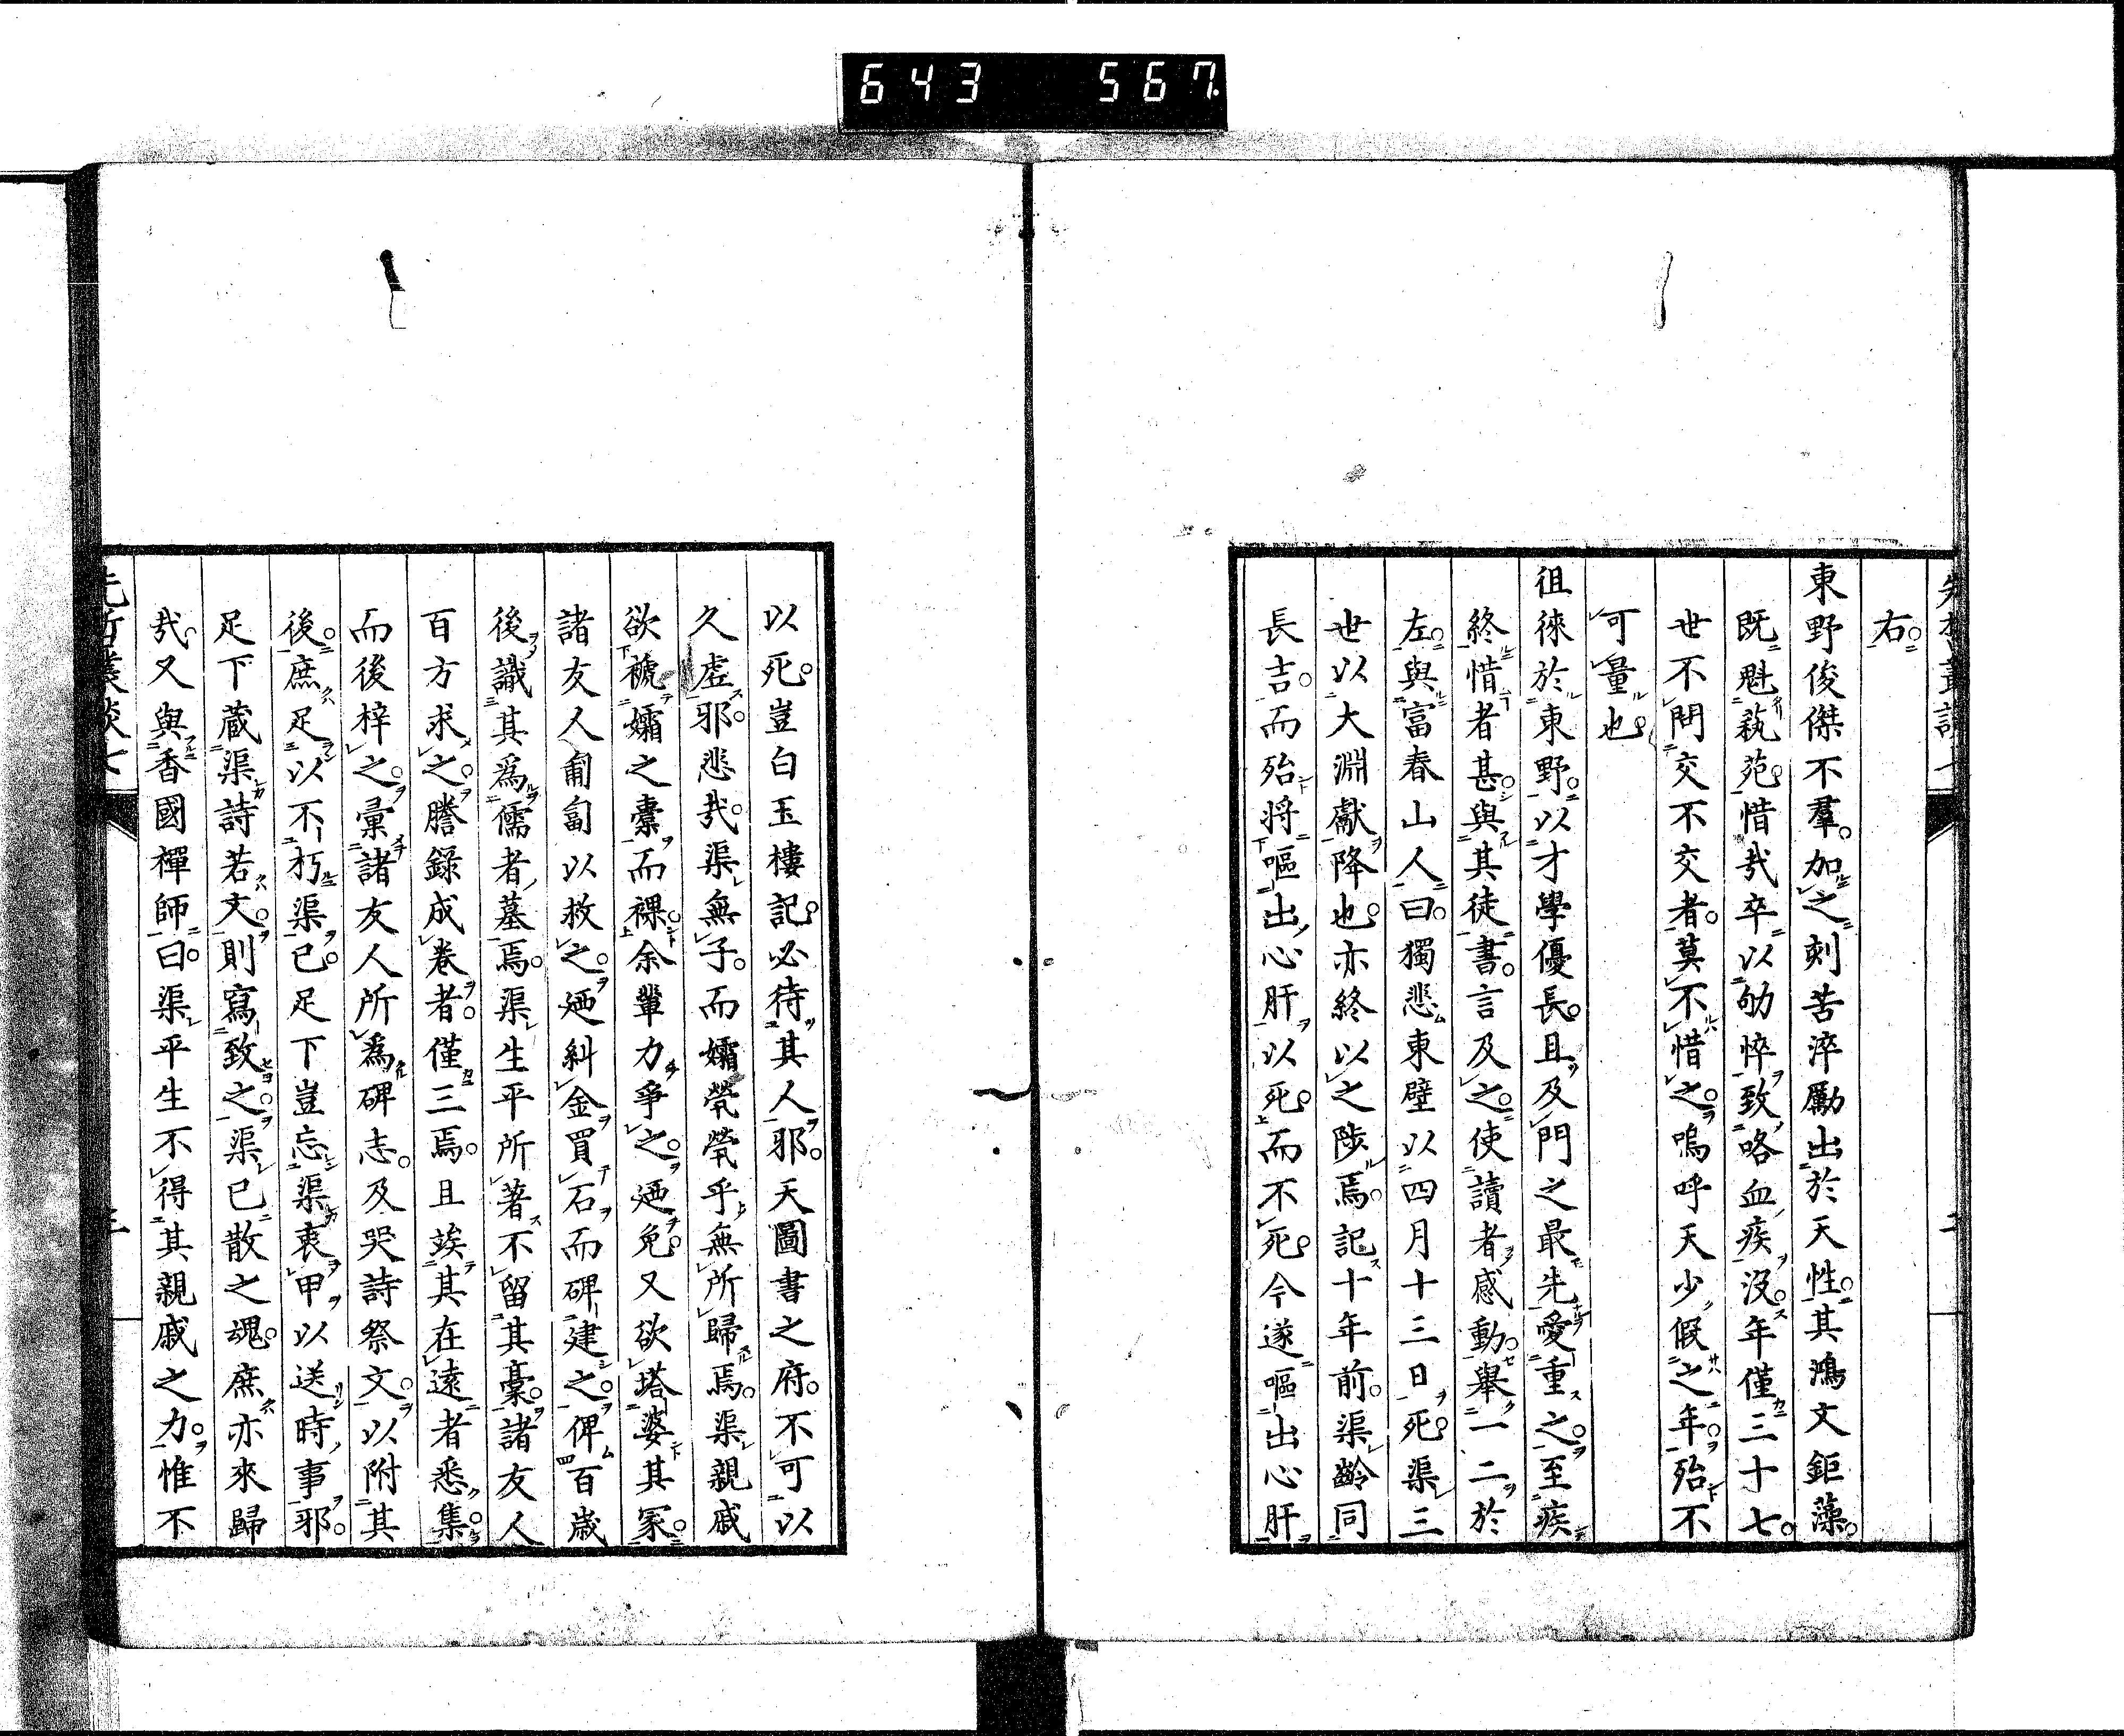 643 567
右。
東野俊傑不羣。加之刻苦淬勵出於天性。其鴻文鉅藻。
既魁蓺苑。惜哉卒以劬悴致咯血疾沒。年僅三十七。
世不問交不交者。莫不惜之。嗚呼天少假之年。殆不
可量也。
徂徠於東野。以才學優長。且及門之最先愛重之。至疾
終惜者甚。與其徒書。言及之。使讀者感動。舉一二於
左。與富春山人曰。獨悲東壁以四月十三日死。渠三
世以大淵獻降也。亦終以之陟焉。記十年前。渠齡同
長吉。而殆將嘔出心肝以死。而不死。今遂嘔出心肝
以死。豈白玉樓記。必待其人邪。天圖書之府。不可以
久虛邪。悲哉。渠無子。而孀煢煢乎無所歸焉。渠親戚
欲褫孀之橐而裸。余輩力爭之。廼免。又欲塔婆其冢。
諸友人匍匐以救之。廼糾金買石而碑建之。俾百歲
後識其爲儒者墓焉。渠生平所著不留其稾。諸友人
百方求之。謄錄成卷者。僅三焉。且竢其在遠者悉集。
而後梓之。彙諸友人所爲碑志。及哭詩祭文。以附其
後。庶足以不朽渠已。足下豈忘渠衷甲以送時事邪。
足下藏渠詩若文。則寫致之。渠已散之魂。庶亦來歸
哉。又與香國禪師曰。渠平生不得其親戚之力。惟不